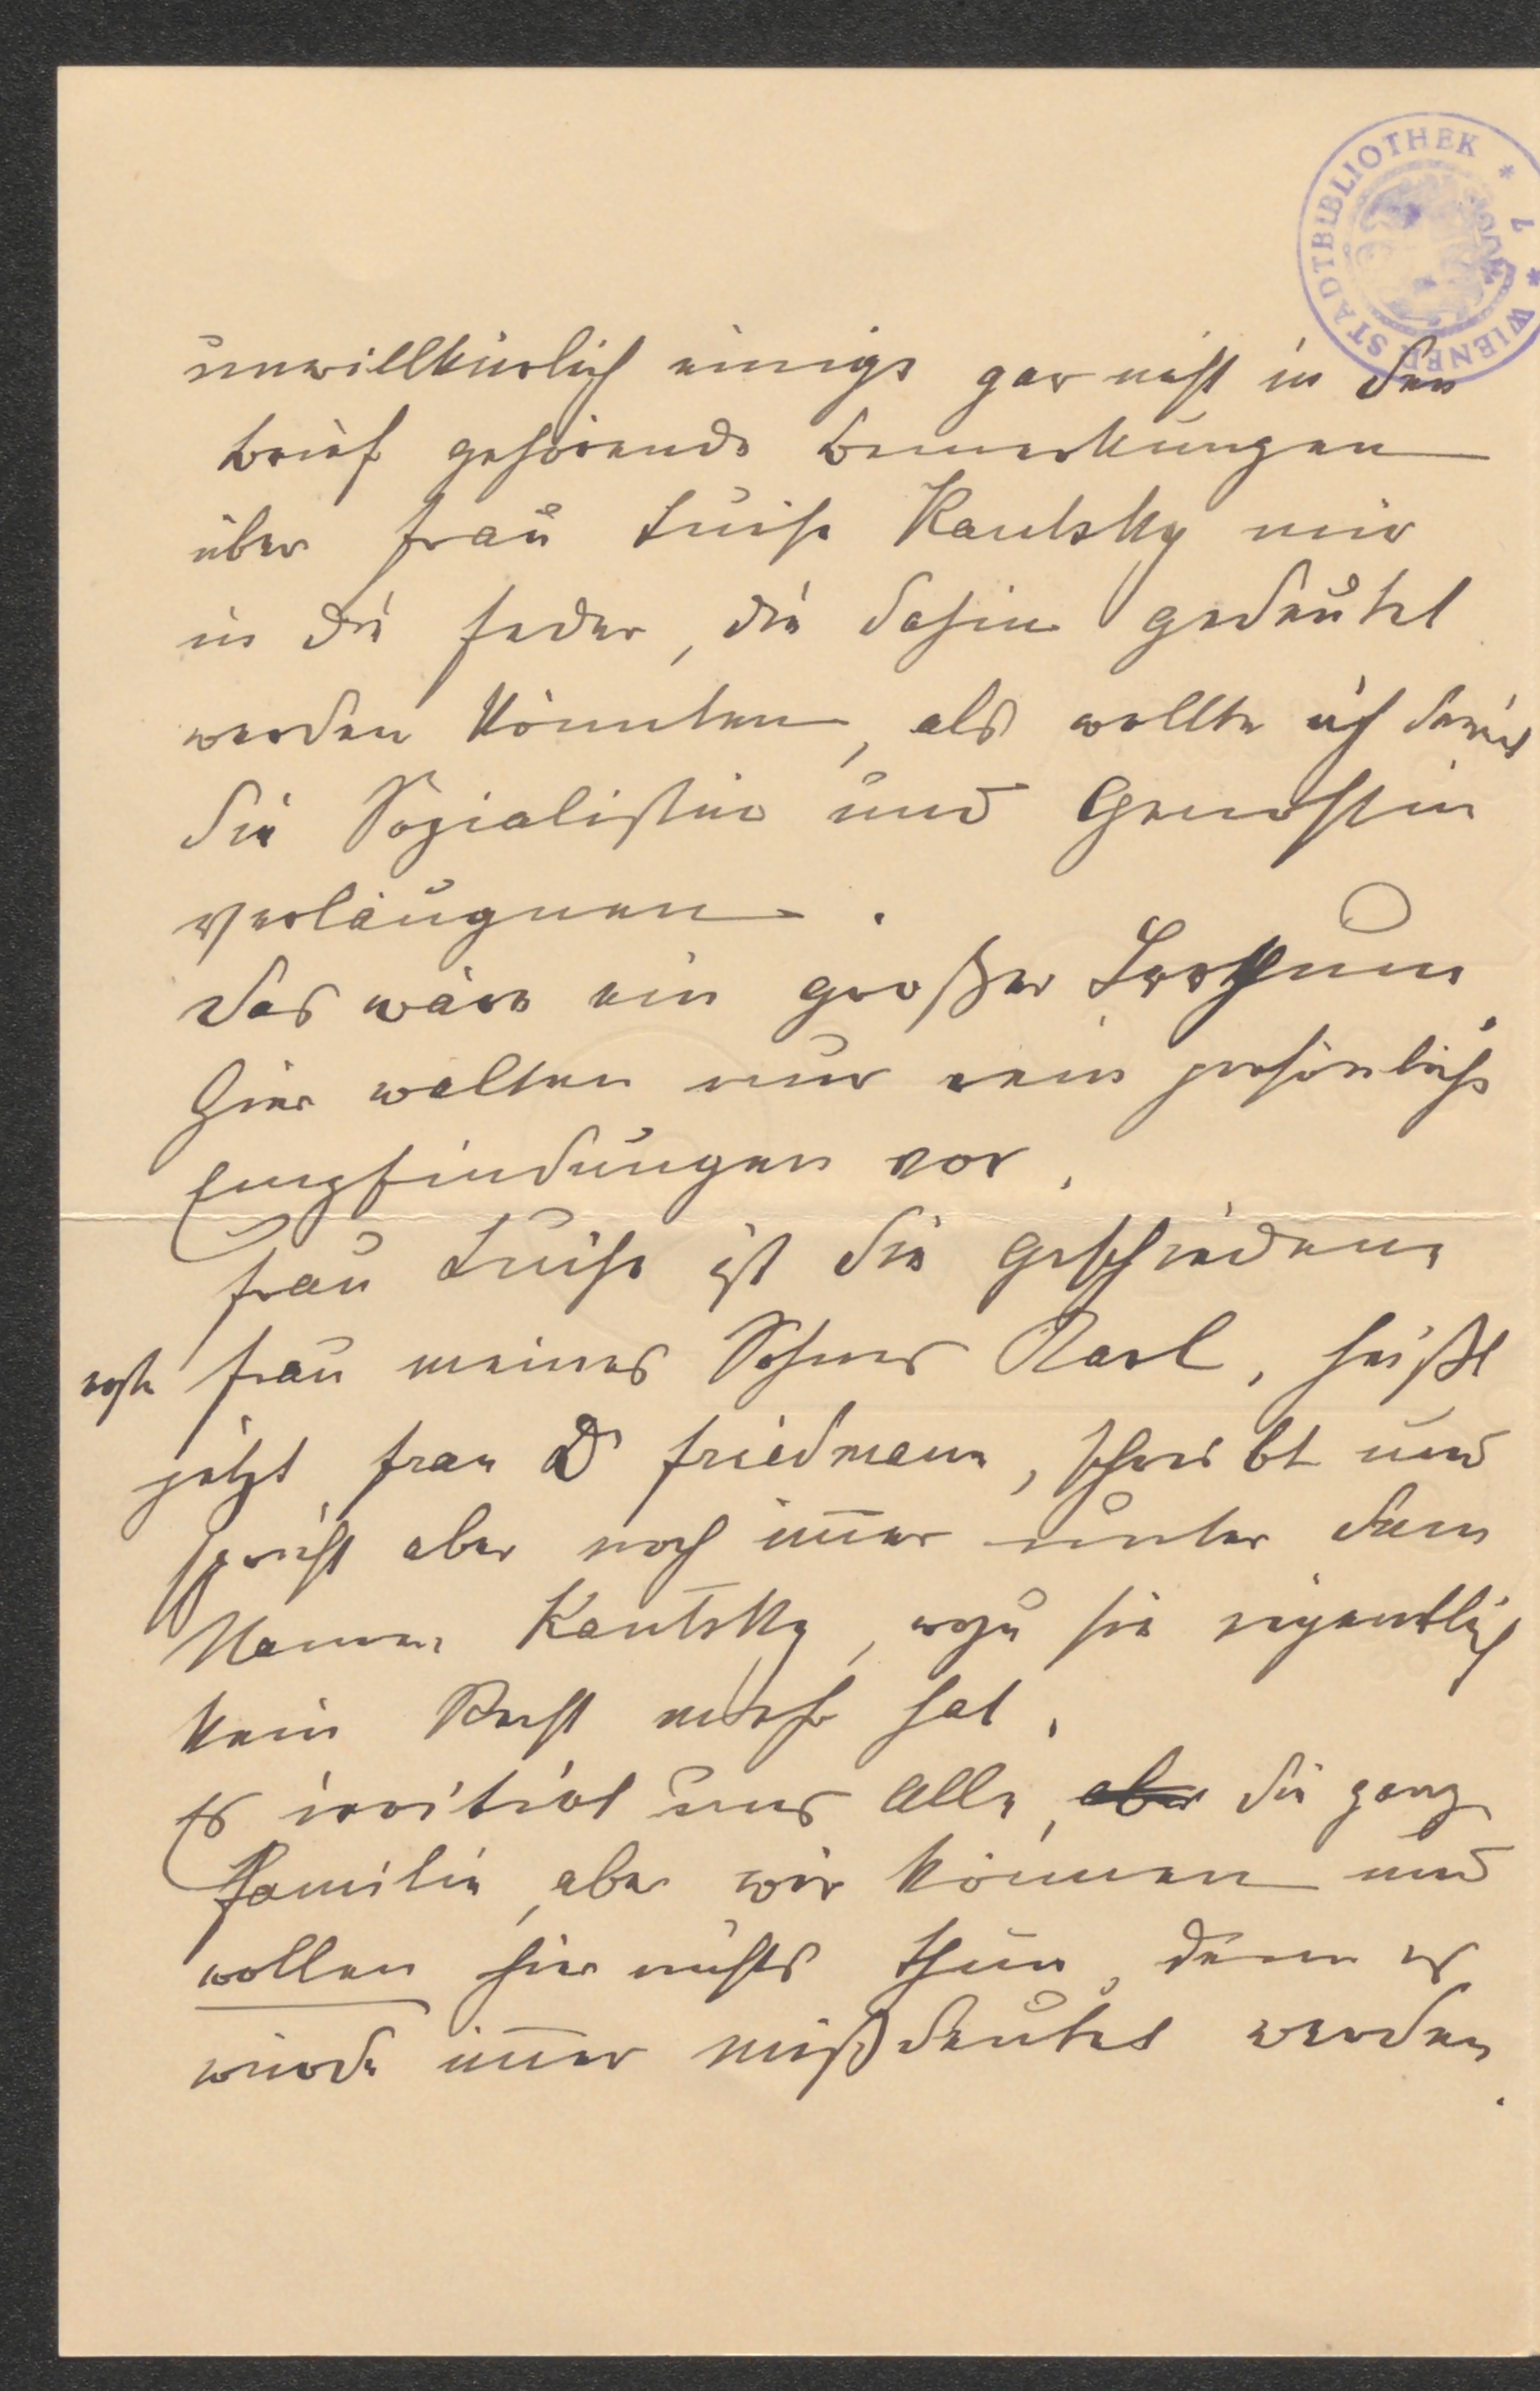 WIENER STADTBIBLIOTHEK * 1 *
unwillkürlich einige gar nicht in den
Brief gehörende Bemerkungen
über Frau Luise Kautsky mir
in die Feder, die dahin gedeutet
werden könnten, als wollte ich damit
die Sozialistin und Genossin
verläugnen.
Das wäre ein großer Irrthum.
Hier walten nur rein persönliche
Empfindungen vor.
Frau Luise ist die geschiedene
erste Frau meines Sohnes Karl, heißt
jetzt Frau Dr Friedmann, schreibt und
spricht aber noch im̅er unter dem
Namen Kautsky, wozu sie eigentlich
kein Recht mehr hat.
Es irritirt uns Alle, aber die ganze
Familie, aber wir können und
wollen hier nichts thun, denn es
würde im̅er mißdeutet werden.